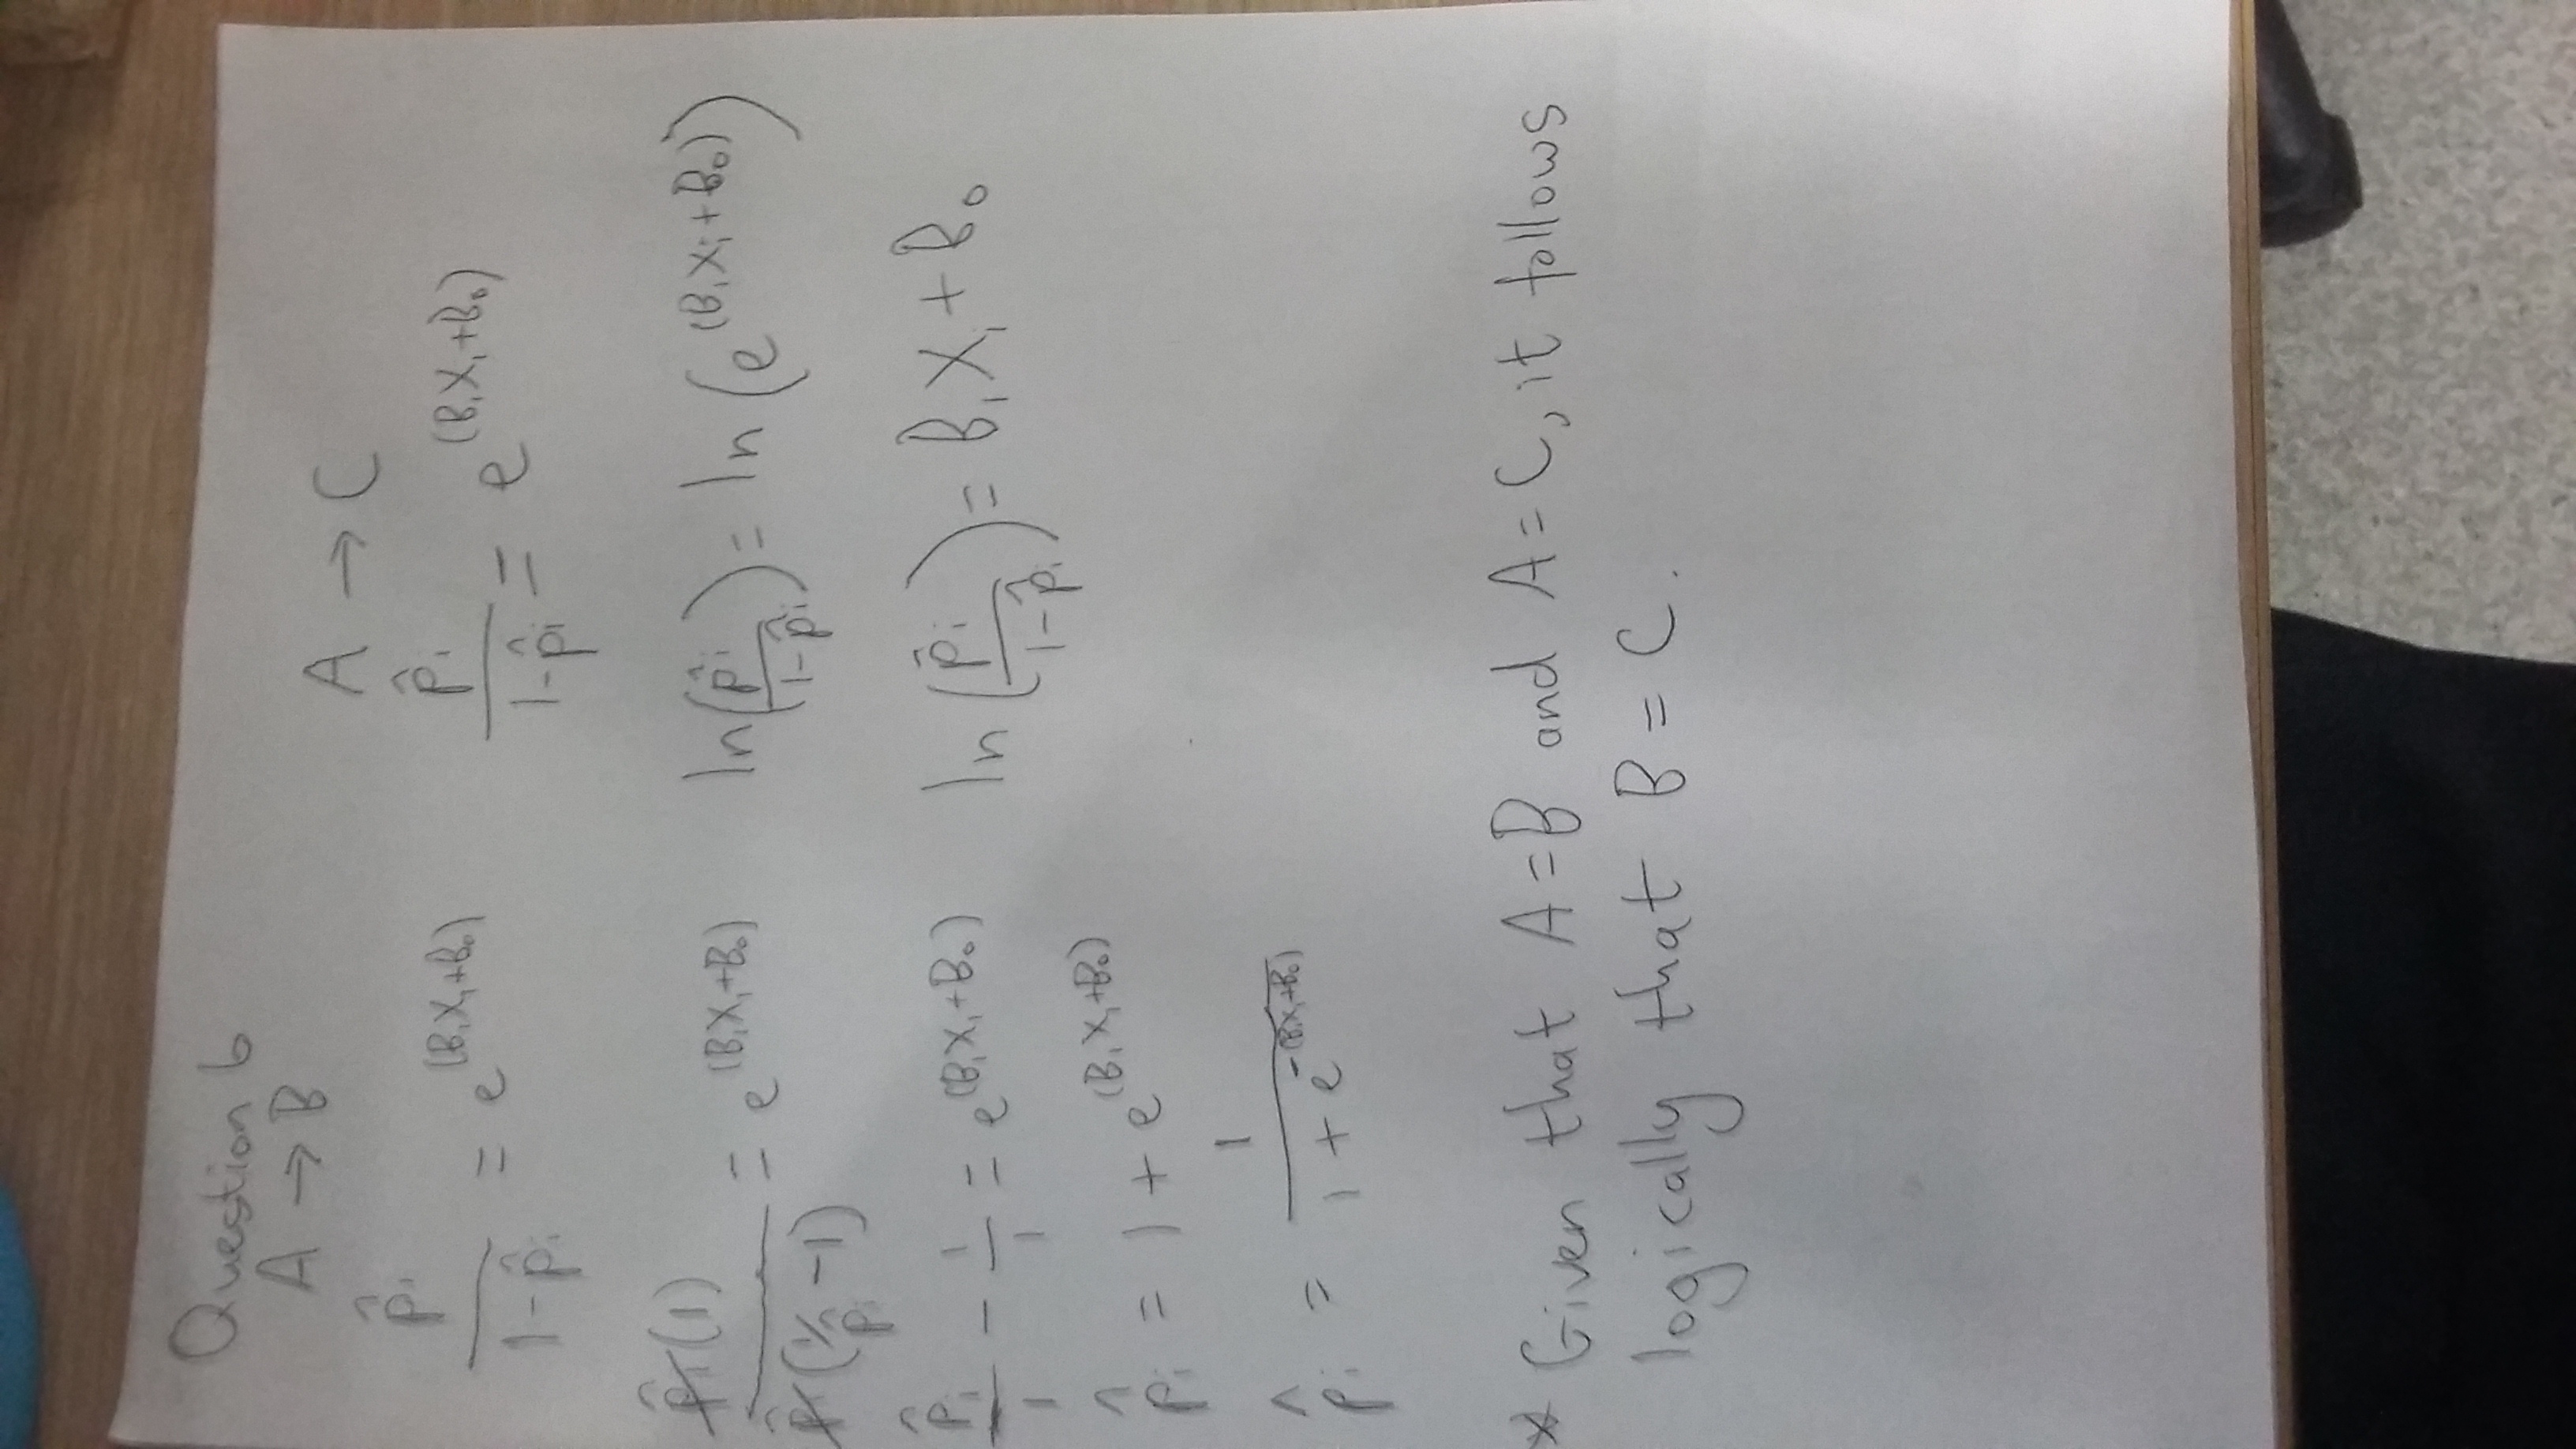 Question 6
A → B
p̂i / 1-p̂i = e^(B₁X₁+B₀)
p̂i(1) / p̂i(1/p̂i -1) = e^(B₁X₁+B₀)
p̂i/1 - 1/1 = e^(B₁X₁+B₀)
p̂i = 1 + e^(B₁X₁+B₀)
p̂i = 1 / 1 + e^-(B₁X₁+B₀)
A → C
p̂i / 1-p̂i = e^(B₁X₁+B₀)
ln(p̂i / 1-p̂i) = ln(e^(B₁X₁+B₀))
ln(p̂i / 1-p̂i) = B₁X₁ + B₀
* Given that A=B and A=C, it follows
logically that B = C.